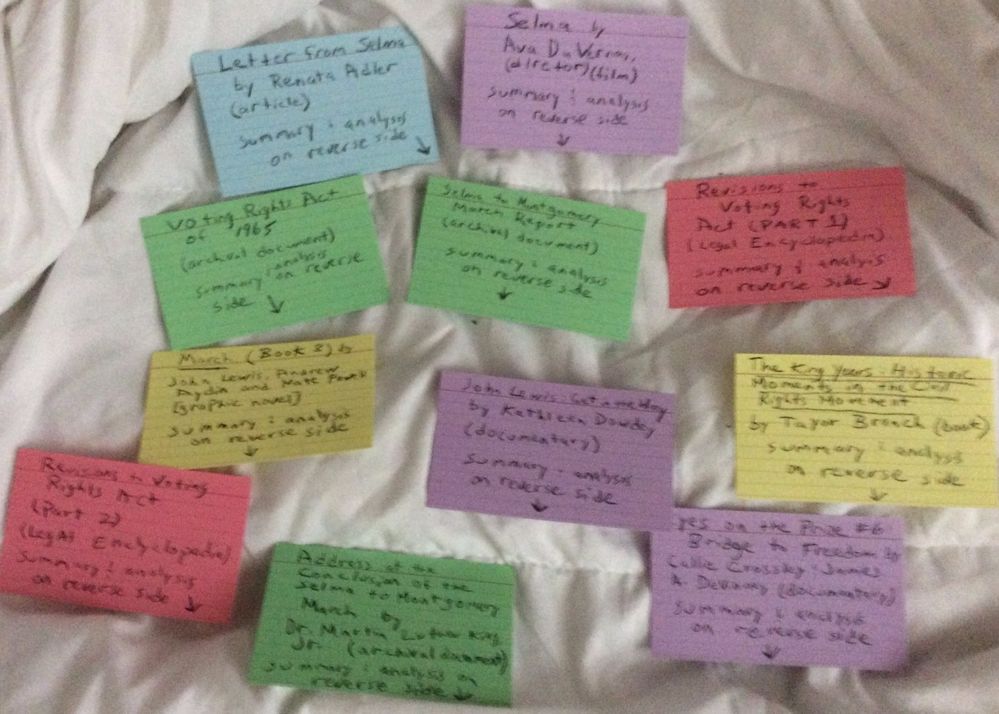 Letter from Selma
by Renata Adler
(article)
summary & analysis
on reverse side
Selma by
Ava DuVernay,
(director)(film)
summary & analysis
on reverse side
Voting Rights Act
of 1965
(archival document)
summary & analysis
on reverse
side
Selma to Montgomery
March Report
(archival document)
summary & analysis
on reverse side
Revisions to
Voting Rights
Act (PART 1)
(Legal Encyclopedia)
summary & analysis
on reverse side
March (Book 3) by
John Lewis, Andrew
Aydin and Nate Powell
[graphic novel]
summary & analysis
on reverse side
John Lewis: Get in the Way
by Kathleen Dowdey
(documentary)
summary & analysis
on reverse side
The King Years: Historic
Moments in the Civil
Rights Movement
by Taylor Branch (book)
summary & analysis
on reverse side
Revisions to Voting
Rights Act
(Part 2)
(Legal Encyclopedia)
summary & analysis
on reverse
side
Address at the
Conclusion of the
Selma to Montgomery
March by
Dr. Martin Luther King,
Jr. (archival document)
summary & analysis on
reverse side
yes on the Prize #6
Bridge to Freedom by
Callie Crossley & James
A. DeVinney (documentary)
summary & analysis
on reverse side